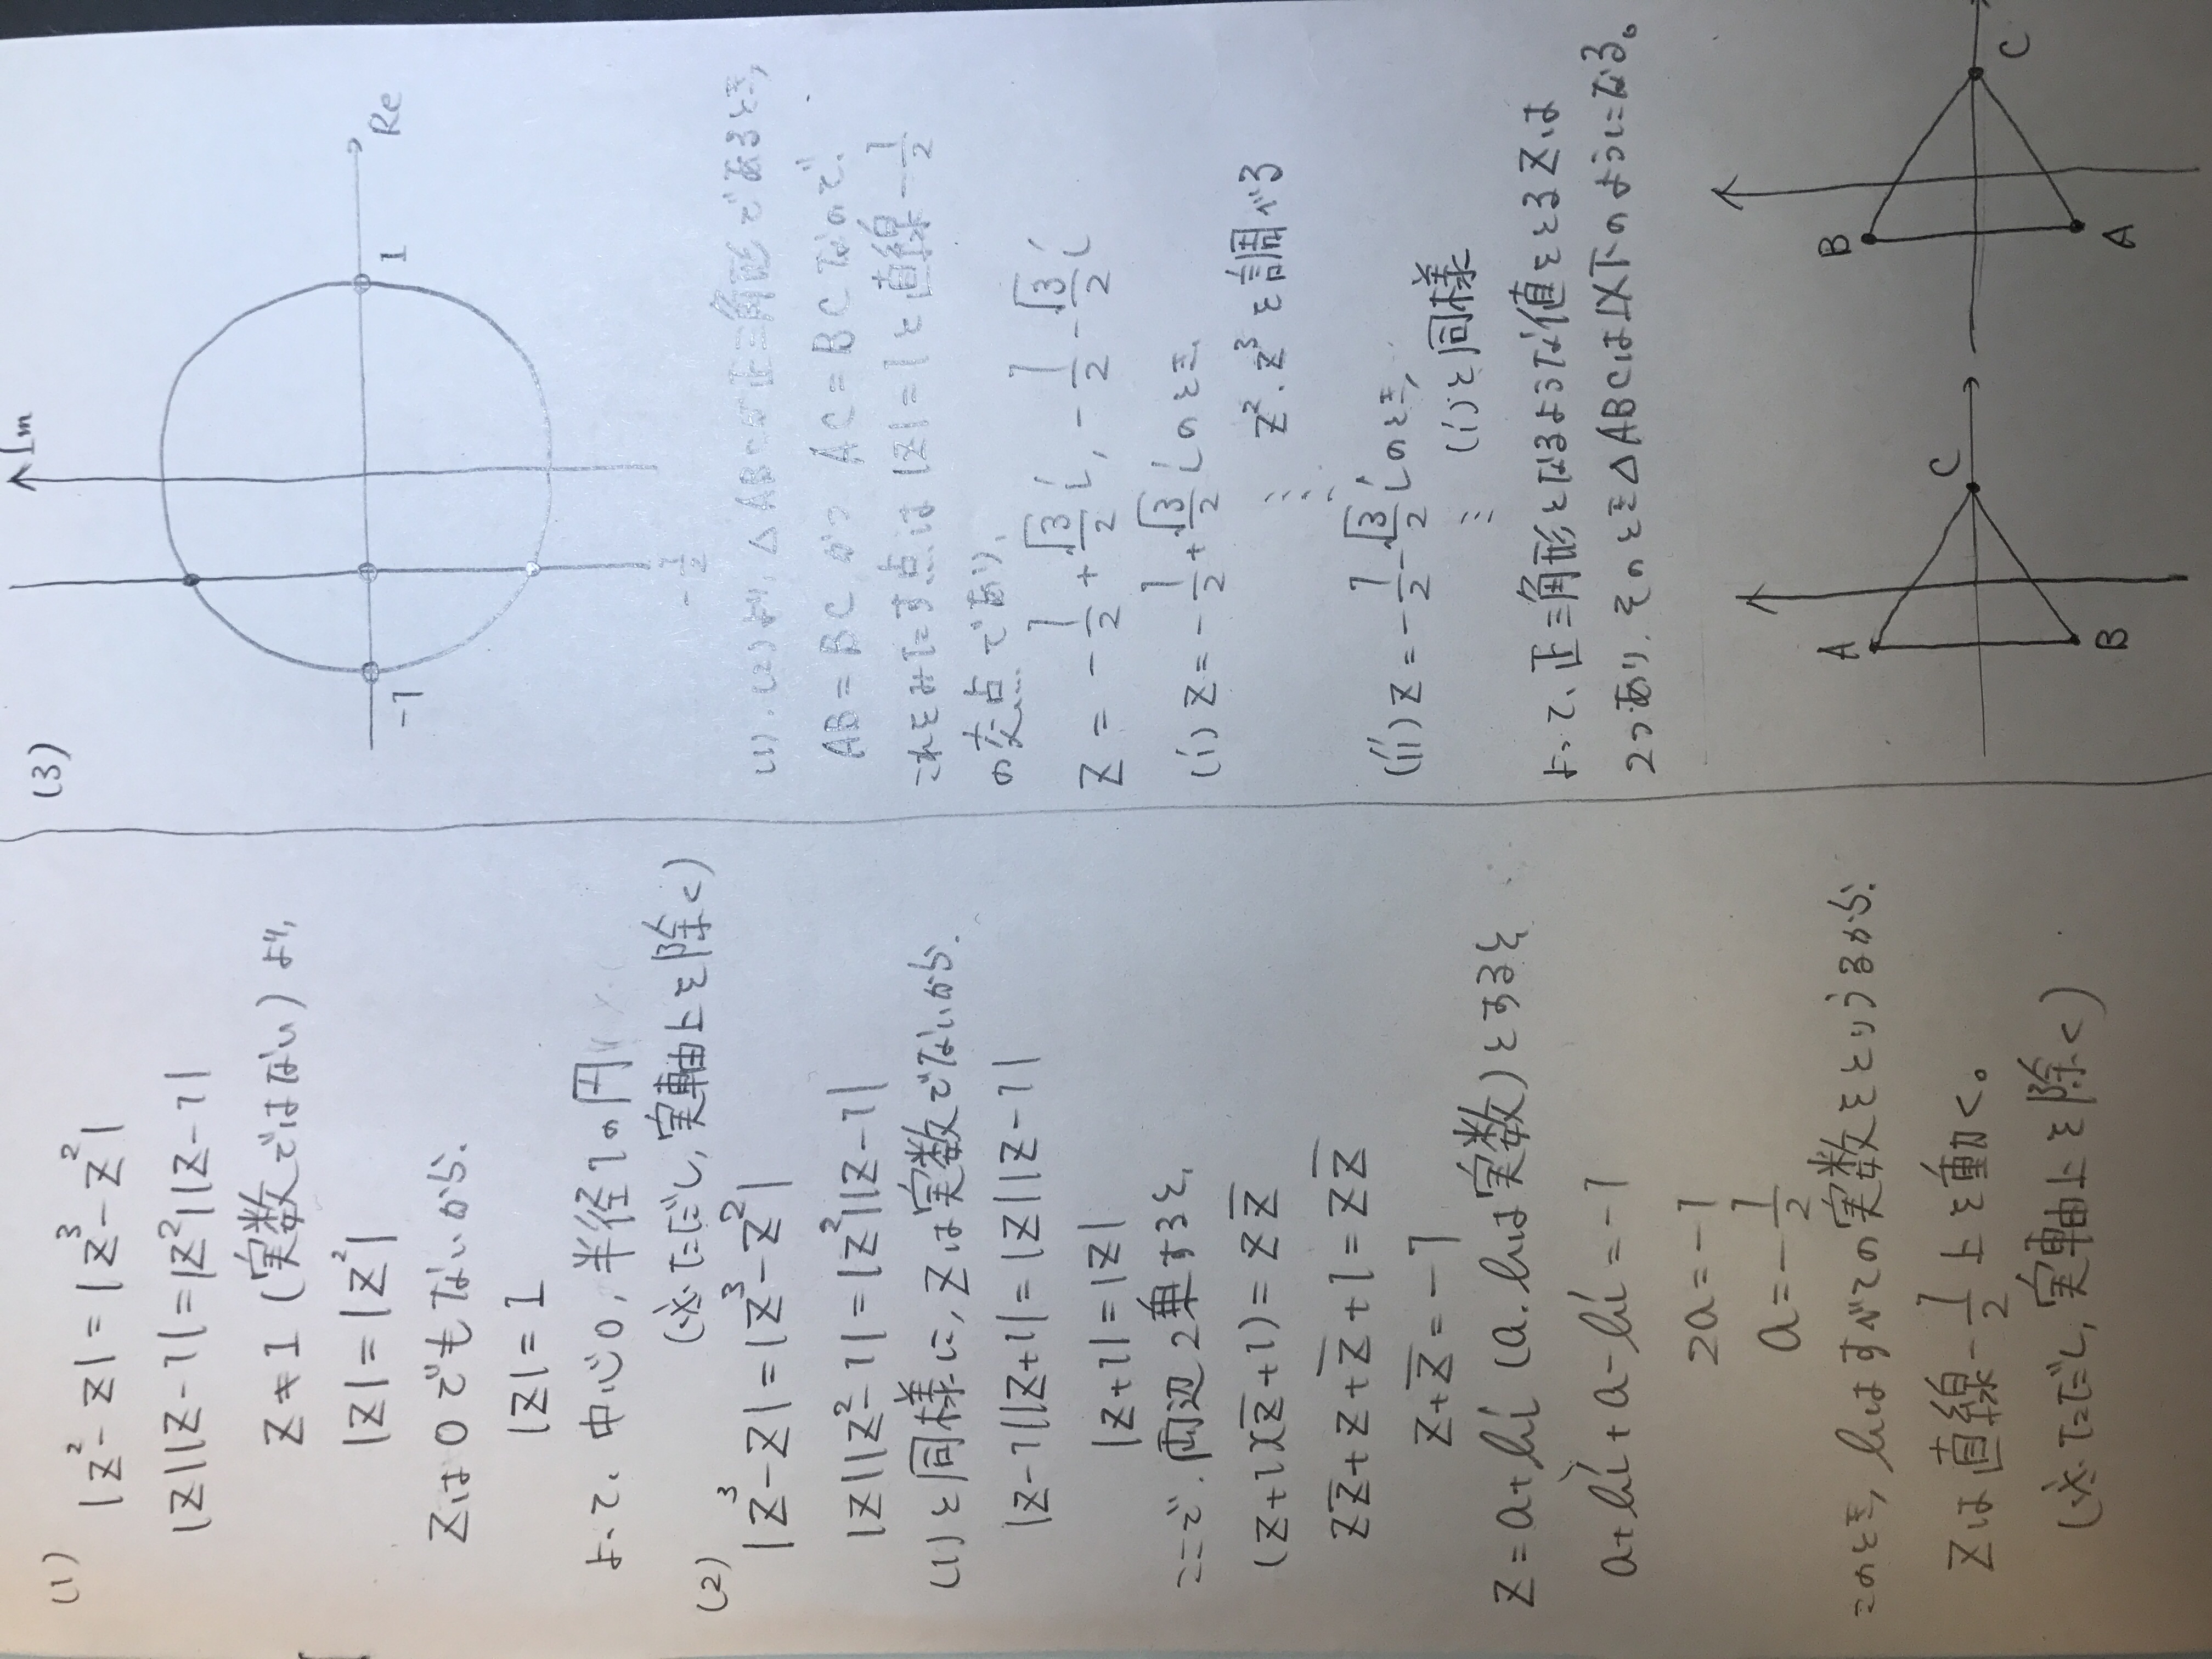 (1)
|z²-z|=|z³-z²|
|z||z-1|=|z²||z-1|
z≠1 (実数ではない) より、
|z|=|z²|
zは0でもないから、
|z|=1
よって、中心0, 半径1の円
(※ただし, 実軸上を除く)
(2)
|z³-z|=|z³-z²|
|z||z²-1|=|z²||z-1|
(1)と同様に, zは実数でないから、
|z-1||z+1|=|z||z-1|
|z+1|=|z|
ここで、両辺2乗すると、
(z+1)(z̅+1)=zz̅
zz̅+z+z̅+1=zz̅
z+z̅=-1
z=a+bi (a.bは実数)とすると
a+bi+a-bi=-1
2a=-1
a=-1/2
このとき, bはすべての実数をとりうるから、
zは直線-1/2上を動く。
(※ただし, 実軸上を除く)
(3)
Im
Re
1
-1
-1/2
(1).(2)より, △ABCが正三角形であるとき,
AB=BC かつ AC=BC なので、
これをみたす点は|z|=1と直線-1/2
の交点であり、
z=-1/2+√3/2i, -1/2-√3/2i
(i) z=-1/2+√3/2iのとき、
z².z³を調べる
⋮
(ii) z=-1/2-√3/2iのとき,
⋮ (i)と同様
よって、正三角形となるような値をとるzは
2つあり、そのとき△ABCは以下のようになる。
A
B
C
B
A
C